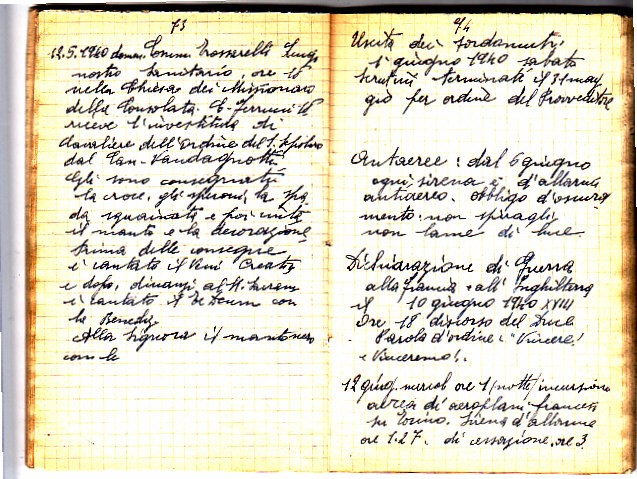 73
12.5.1940 domen. Comm. Rossarelli
nostro Sanitario, ore 18
nella Chiesa dei Missionari
della Consolata. E.
riceve l'investitura di
Cavaliere dell'Ordine del S. Sepolcro
dal Can.
Gli sono consegnati
la croce, gli speroni, la spa
da sguainata e poi
il manto e la decorazione
prima delle consegne
è cantato il Veni Creator
e dopo, dinanzi al
è cantato il Te Deum con
la Bened.
Alla Signora il manto nero
con le
74
Uscita dei
1° giugno 1940 sabato
scrutini terminati il 31 mag
gio per ordine del Provveditore
Antiaerei: dal 6 giugno
ogni sirena è d'allarme
antiaereo. obbligo d'oscura
mento: non spiragli
non lame di luce.
Dichiarazione di Guerra
alla Francia e all'Inghilterra
il 10 giugno 1940 XVIII
Ore 18 discorso del Duce
Parola d'ordine: "Vincere!
e Vinceremo!.
12 giug. mercol ore 1 (notte) incursione
aerea di aeroplani francesi
su Torino. Sirena d'allarme
ore 1.27. di cessazione, ore 3.